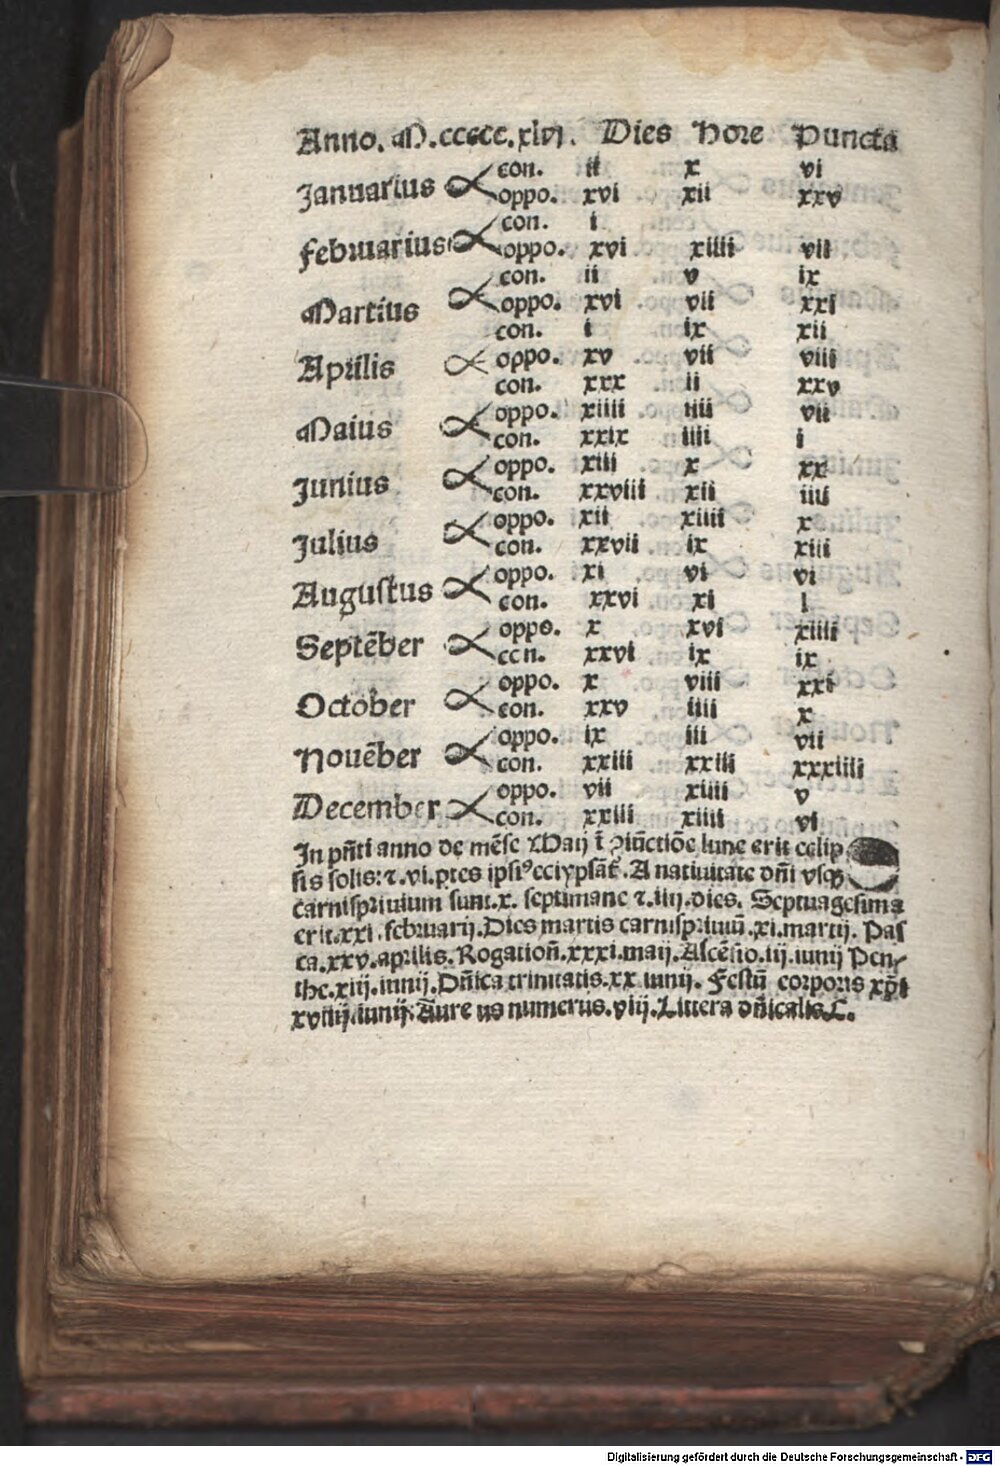 Anno. M.ccccc.xlvj. Dies Hore Puncta
Januarius con. ii x vi
oppo. xvi xii xxv
februarius con. i
oppo. xvi xiiii vii
Martius con. ii v ix
oppo. xvi vii xxi
Aprilis con. i ix xii
oppo. xv vii viii
con. xxx ii xxv
Maius oppo. xiiii iiii vii
con. xxix iiii i
Junius oppo. xiii x xx
con. xxviii xii iiii
Julius oppo. xii xiiii x
con. xxvii ix xiii
Augustus oppo. xi vi vi
con. xxvi xi i
Septēber oppo. x xvi xiiii
con. xxvi ix ix
October oppo. x viii xxi
con. xxv iiii x
Nouēber oppo. ix iii vii
con. xxiii xxiii xxxiiii
December oppo. vii xiiii v
con. xxiii xiiii vi
In pñti anno de mēse Maij ī ꝯiūctiōe lune erit eclip
sis solis: ⁊.vi.ptes ipsiꝰ A natiuitate dñi vsqꝫ
carnispriuium sunt.x. septimane ⁊.iiij.dies. Septuagesima
erit.xxi.februarij.Dies martis carnispriuiū.xi.martij. Pas
ca.xxv.aprilis.Rogationū.xxxi.maij.Ascēsio.iij.iunij Pen-
the.xiij.iunij.Dñica trinitatis.xx iunij. Festū corporis xp̄i
xviiij.iunij.Aure us numerus.viij.Littera dñicalis.C.
Digitalisierung gefördert durch die Deutsche Forschungsgemeinschaft - DFG